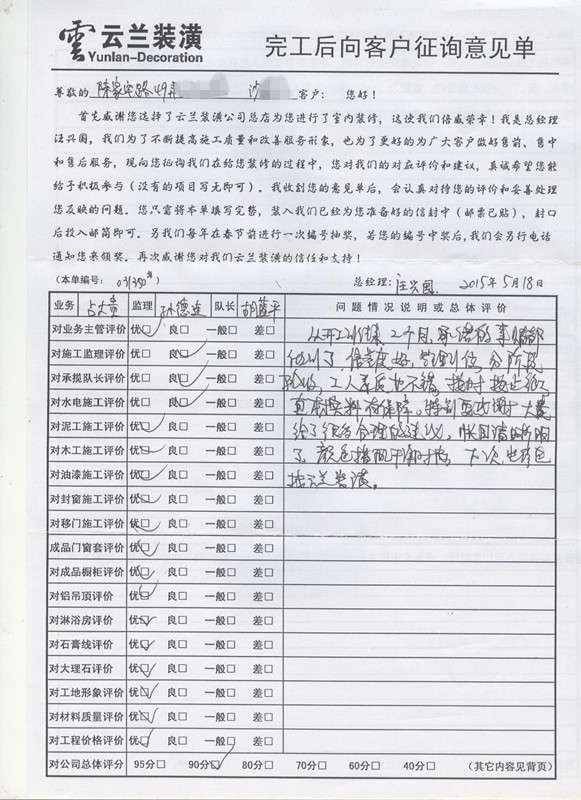 雲 云兰装潢
Yunlan-Decoration
完工后向客户征询意见单
尊敬的 陈家宅路49弄 沙 客户： 您好！
首先感谢您选择了云兰装潢公司总店为您进行了室内装修，这使我们倍感荣幸！我是总经理
汪兴国，我们为了不断提高施工质量和改善服务形象，也为了更好的为广大客户做好售前、售中
和售后服务，现向您征询我们在给您装修的过程中，您对我们的对应评价和建议，真诚希望您能
给予积极参与（没有的项目写无即可）。我收到您的意见单后，会认真对待您的评价和妥善处理
您反映的问题。您只需将本单填写完整，装入我们已经为您准备好的信封中（邮票已贴），封口
后投入邮筒即可。另我们每年在春节前进行一次编号抽奖，若您的编号中奖后，我们会另行电话
通知您来领奖。再次感谢您对我们云兰装潢的信任和支持！
（本单编号： 031350 总经理：汪兴国 2015年5月18日
业务 占大贵 监理 孙德连 队长 胡 平 问题情况说明或总体评价
对业务主管评价 优□ 良□ 一般□ 差□
对施工监理评价 优□ 良□ 一般□ 差□
对承揽队长评价 优□ 良□ 一般□ 差□
对水电施工评价 优□ 良□ 一般□ 差□
对泥工施工评价 优□ 良□ 一般□ 差□
对木工施工评价 优□ 良□ 一般□ 差□
对油漆施工评价 优□ 良□ 一般□ 差□
对封窗施工评价 优□ 良□ 一般□ 差□
对移门施工评价 优□ 良□ 一般□ 差□
成品门窗套评价 优□ 良□ 一般□ 差□
对成品橱柜评价 优□ 良□ 一般□ 差□
对铝吊顶评价 优□ 良□ 一般□ 差□
对淋浴房评价 优□ 良□ 一般□ 差□
对石膏线评价 优□ 良□ 一般□ 差□
对大理石评价 优□ 良□ 一般□ 差□
对工地形象评价 优□ 良□ 一般□ 差□
对材料质量评价 优□ 良□ 一般□ 差□
对工程价格评价 优□ 良□ 一般□ 差□
对公司总体评分 95分□ 90分□ 80分□ 70分□ 60分□ 40分□ （其它内容见背页）
从开工到结束 2个月，承诺的事情都
做到了，信誉度好，管理到位，分阶段
验收，工人素质也不错，
真材实料有保障。特别要感谢大贵
给了很多合理的建议，
了，颜色搭配 下次也有包
给云兰装潢。